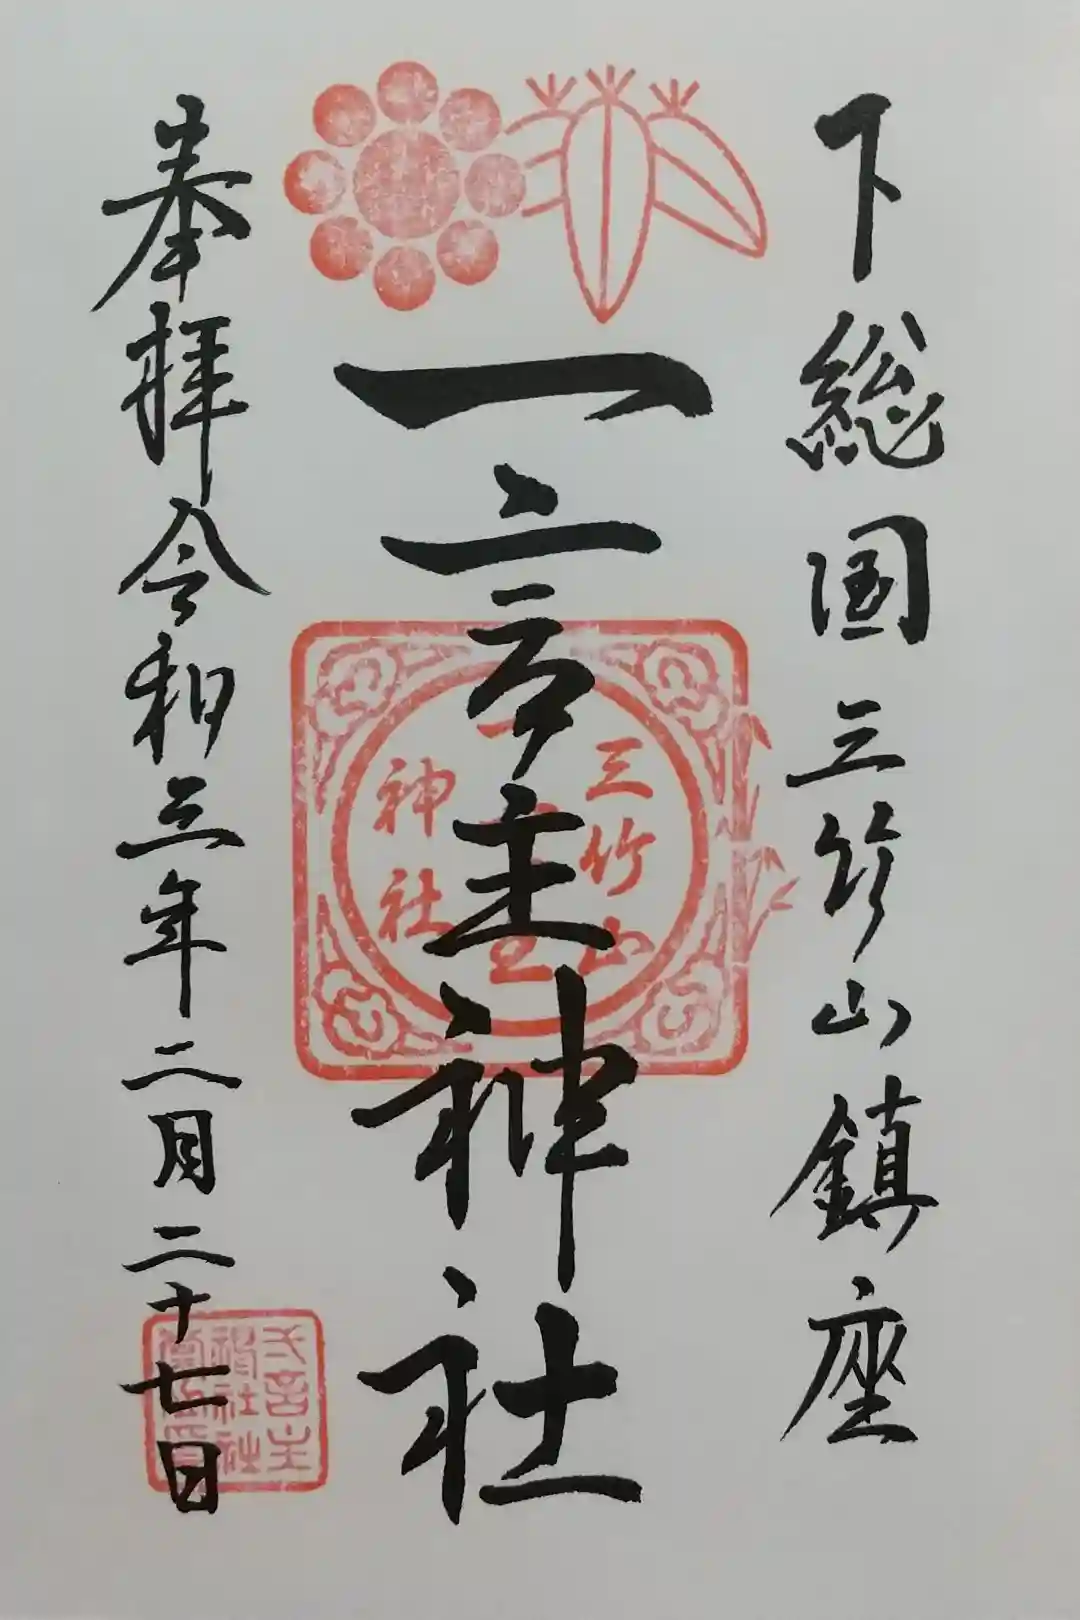 下総国三竹山鎮座
一言主神社
奉拝令和三年二月二十七日
三竹山
神社